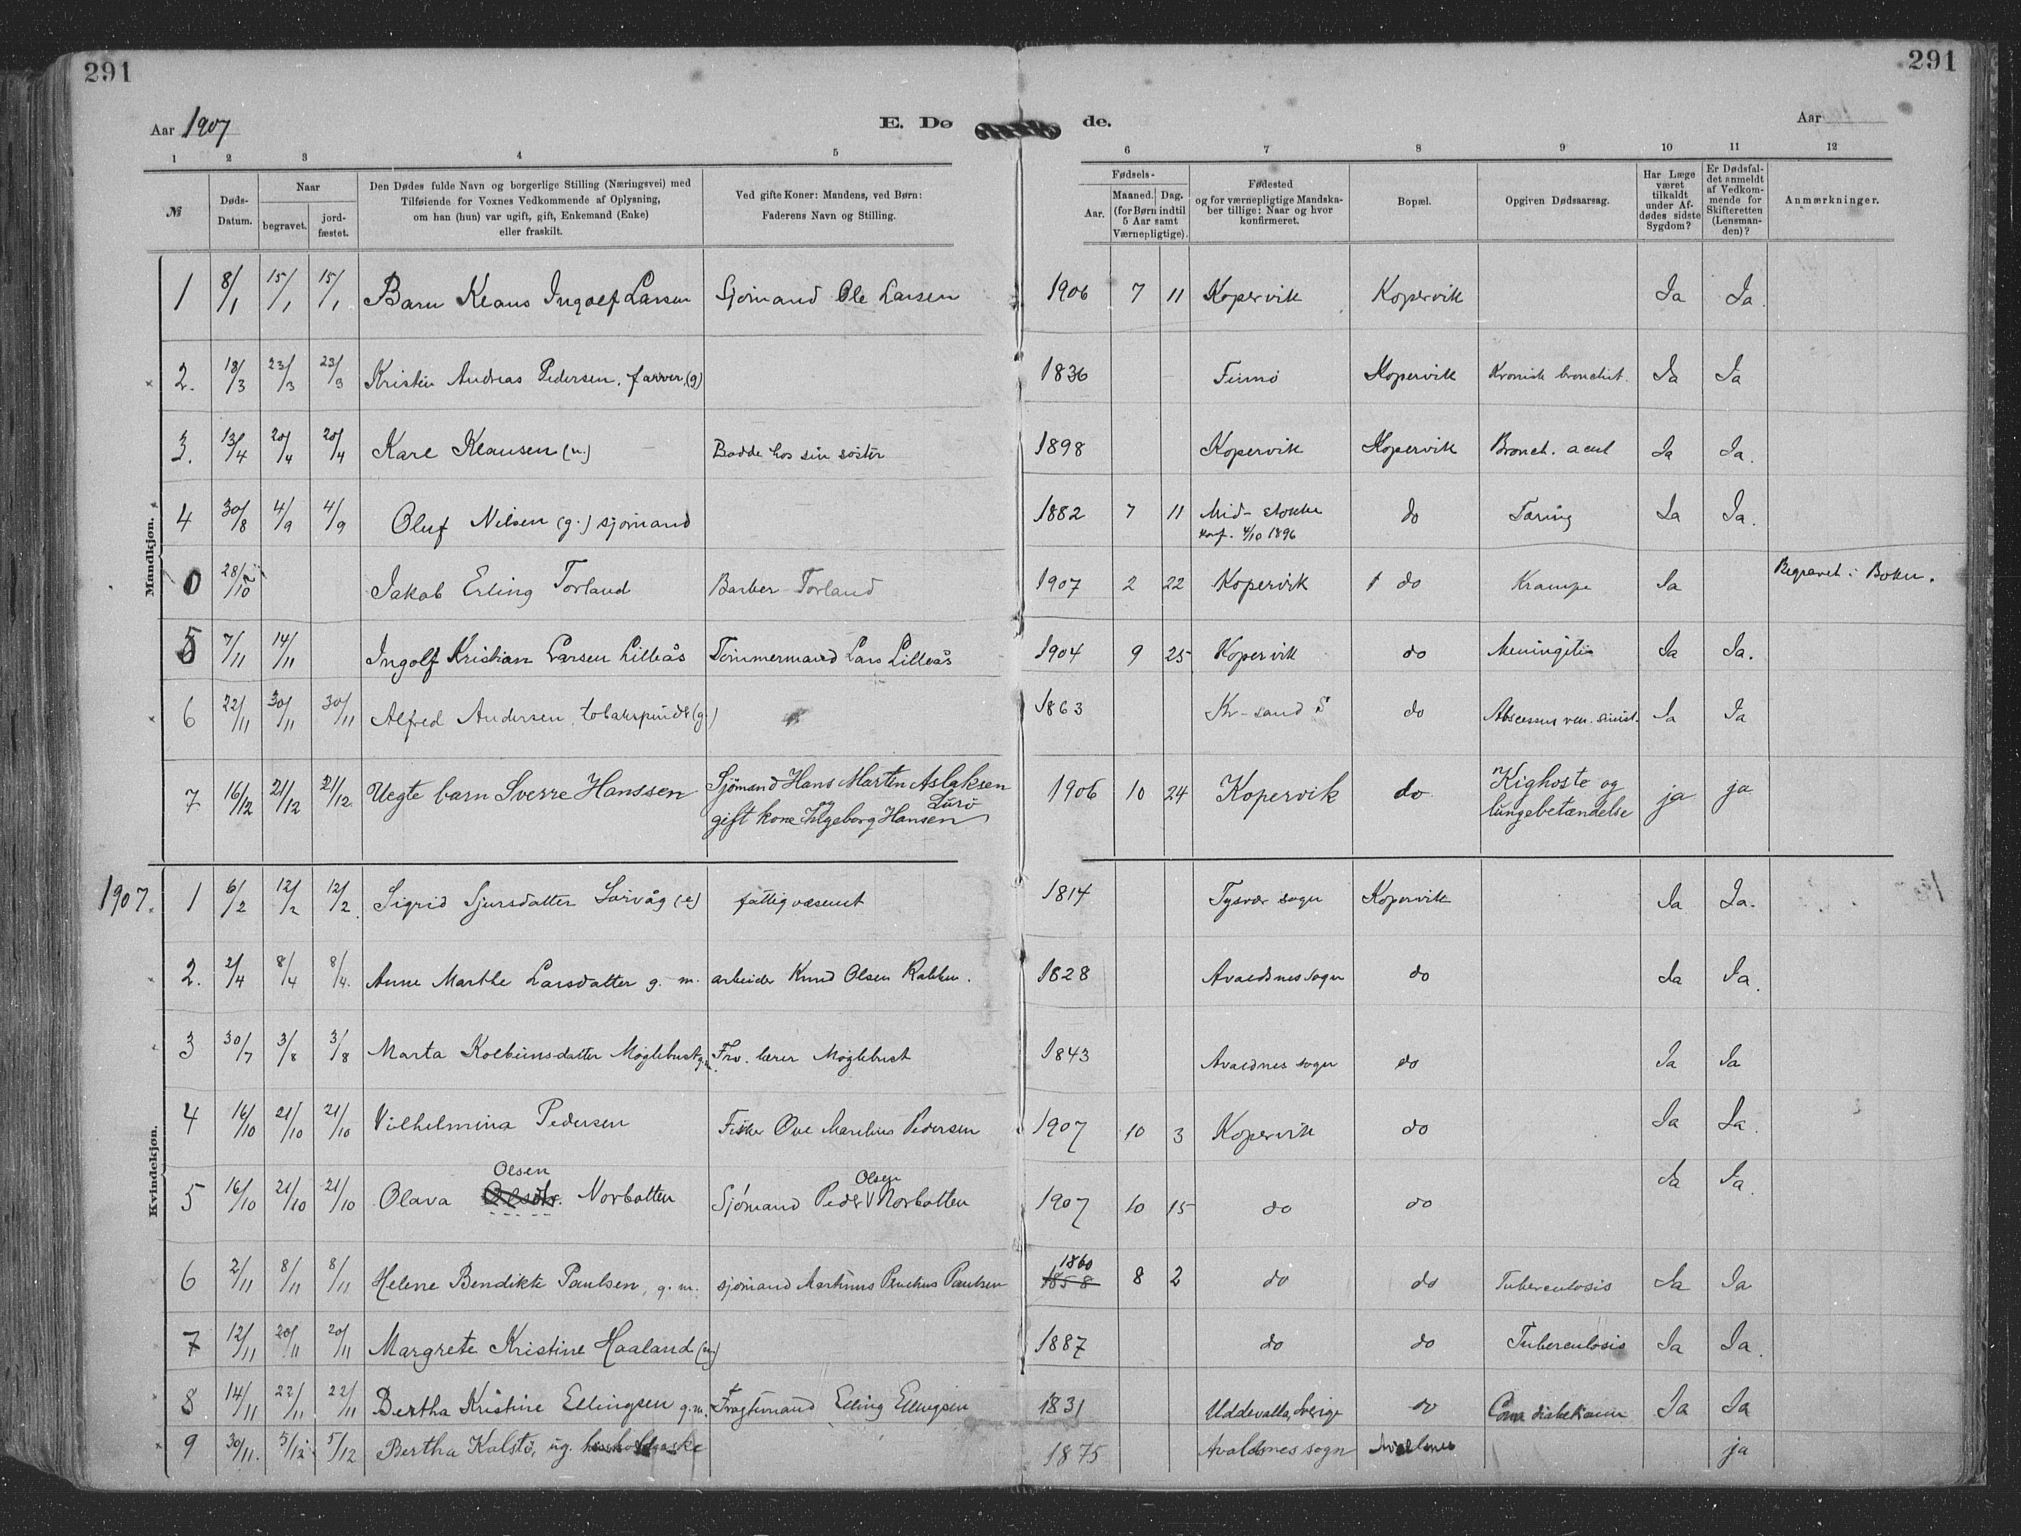 291
291
Aar 1907
E. Dø de.
Aar
1 2 3 4 5 6 7 8 9 10 11 12
№
Døds-Datum.
Naar
begravet.
jord-fæstet.
Den Dødes fulde Navn og borgerlige Stilling (Næringsvei) med
Tilføiende for Voxnes Vedkommende af Oplysning,
om han (hun) var ugift, gift, Enkemand (Enke)
eller fraskilt.
Ved gifte Koner: Mandens, ved Børn:
Faderens Navn og Stilling.
Fødsels-
Aar.
Maaned. Dag.
(for Børn indtil
5 Aar samt
Værnepligtige).
Fødested
og for værnepligtige Mandska-
ber tillige: Naar og hvor
konfirmeret.
Bopæl.
Opgiven Dødsaarsag.
Har Læge
været
tilkaldt
under Af-
dødes sidste
Sygdom?
Er Dødsfal-
det anmeldt
af Vedkom-
mende for
Skifteretten
(Lensman-
den)?
Anmærkninger.
Mandkjøn.
1 8/1 15/1 15/1 Barn Klaus Ingolf Larsen Sjømand Ole Larsen 1906 7 11 Kopervik Kopervik Ja Ja.
2. 18/3 23/3 23/3 Kristen Andreas Pedersen, farver (g) 1836 Finnø Kopervik Kronisk bronchit. Ja Ja
3. 13/4 20/4 20/4 Karl Klausen (u.) Bodde hos sin søster 1898 Kopervik Kopervik Bronch. acut Ja Ja.
4 30/8 4/9 4/9 Oluf Nilsen (g.) sjømand 1882 7 11 Mid-stokke do Tæring Ja Ja.
konf. 4/10 1896
0 28/10 Jakob Erling Torland Barber Torland 1907 2 22 Kopervik do Krampe Ja Begravet i Bokn.
5 7/11 14/11 Ingolf Kristian Larsen Lilleås Tømmermand Lars Lilleås 1904 9 25 Kopervik do Meningitis Ja Ja.
6 22/11 30/11 30/11 Alfred Andersen, tobakspinder (g.) 1863 Kr-sand S do Abscessus ven. sinist. Ja Ja
7 16/12 21/12 21/12 Uegte barn Sverre Hanssen Sjømand Hans Martin Aslaksen Lurø 1906 10 24 Kopervik do Kighoste og ja ja
gift kone Ingeborg Hansen lungebetændelse
1907.
Kvindekjøn.
1 6/2 12/2 12/2 Sigrid Sjursdatter Sørvåg (e) fattigvæsenet 1814 Tysvær sogn Kopervik Ja Ja.
2. 2/4 8/4 8/4 Anne Marthe Larsdatter g. m. arbeider Knud Olsen Rakken. 1828 Avaldsnes sogn do Ja Ja.
3 30/7 3/8 3/8 Marta Kolbeinsdatter Møglebust g.m. Frv. lærer Møglebust 1843 Avaldnes sogn do Ja Ja
4 16/10 21/10 21/10 Vilhelmina Pedersen Fisker Ove Marthus Pedersen 1907 10 3 Kopervik do Ja Ja.
5 16/10 21/10 21/10 Olava Olsen Norbotten Sjømand Peder Olsen Norbotten 1907 10 15 do do Ja Ja.
6 2/11 8/11 8/11 Helene Bendikte Paulsen, g. m. sjømand Martinus Paulsen 1860 1858 8 2 do do Tuberculosis Ja Ja
7 12/11 20/11 20/11 Margrete Kristine Haaland (u) 1887 do do Tuberculosis Ja Ja.
8 14/11 22/11 22/11 Bertha Kristine Ellingsen g.m. Fragtemand Elling Ellingsen 1831 Uddevalla, Sverige do Coma diabeticum Ja Ja
9 30/11. 5/12 5/12 Bertha Kalstø, ug. 1875 Avaldsnes sogn Avaldsnes ja